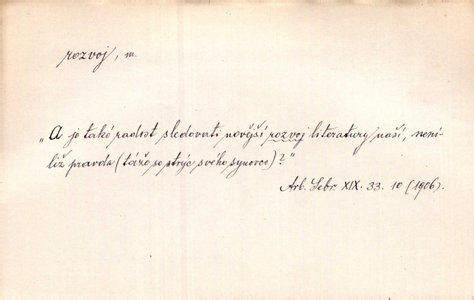 rozvoj, m.
„A jè také radost sledovati novější rozvoj literatury naší, není-
liž pravda (táže se strýc svého synovce)?“
Arb. Sebr. XIX. 33. 10 (1906).